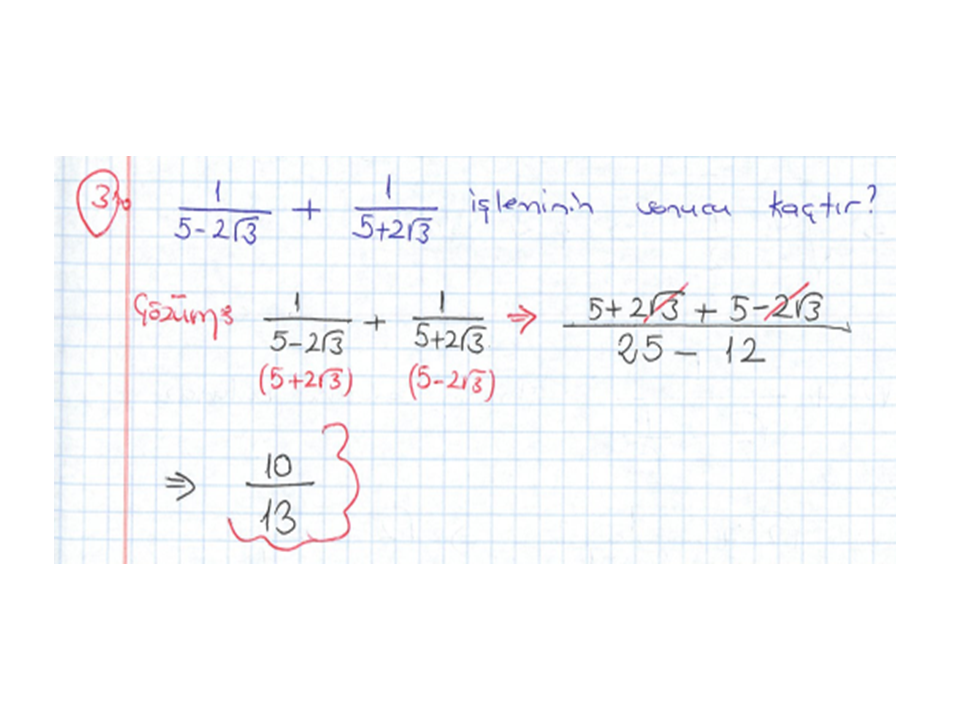 3) 1/(5-2√3) + 1/(5+2√3) işleminin sonucu kaçtır?
Çözüm: 1/(5-2√3) + 1/(5+2√3) ⇒ (5+2√3 + 5-2√3)/(25-12)
(5+2√3) (5-2√3)
⇒ 10/13